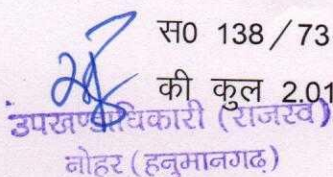 स0 138/73
की कुल 2.01
उपखण्डाधिकारी (राजस्व)
नोहर (हनुमानगढ़)